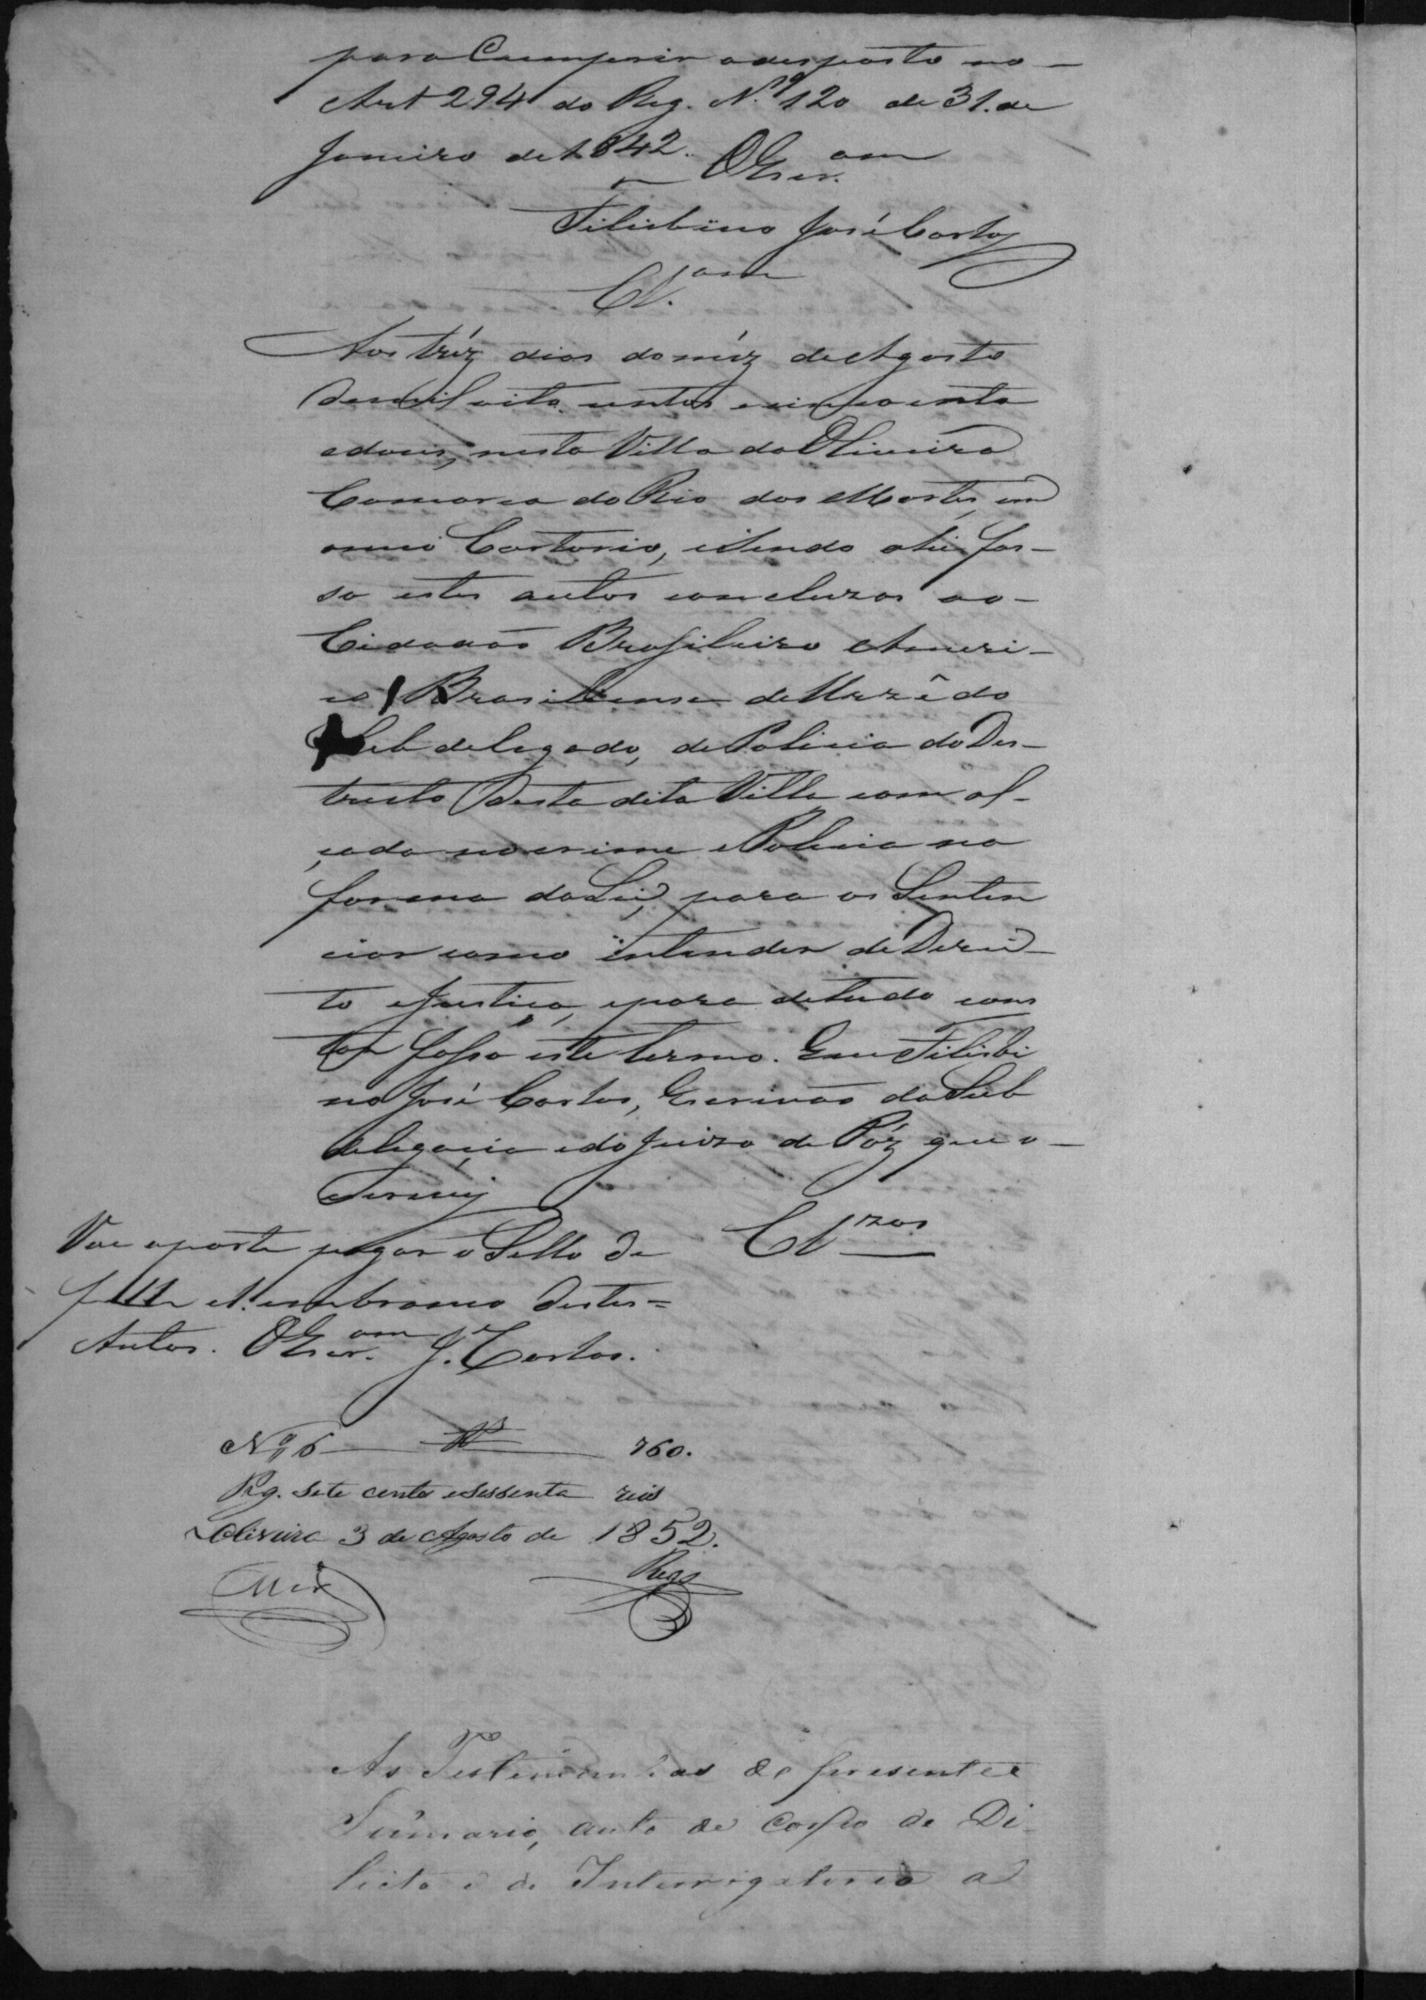 para Cumprir odesposto no-
Art 294 do Reg. N.º 120 de 31. de
Janeiro de 1842. O Escr.am
Felisbino José Carlos
Cl.am
Aos tréz dias do méz de Agosto
de mil oito centos e cincoenta
e dous, nesta Villa da Oliveira
Comarca do Rio das Mortes, em
o meu Cartorio, e sendo ahi fas-
so estes autos concluzos ao-
Cidadaõ Brasileiro Ameri-
co Brasiliense de Urzêdo
Sub delegado, de Policia do Des-
tricto desta dita Villa com al-
çada no crime e Policia na
forma da Lei, para os Senten
ciar como intender de Direi-
to e Justiça, e para de tudo cons
tar fasso este termo. Eu Felisbi
no José Carlos, Escrivaõ da Sub
delegacia e do Juizo de Páz que o-
escrevy
Clzos
Vae aparte pagar o Sello de
f e hum embranco destes=
Autos. O Escr.am J. Carlos.
Nº 6 Rs 760.
Pg. sete centos e sessenta reis
Oliveira 3 de Agosto de 1852.
Reas
As Testemunhas do presente
Súmario, auto de Corpo de De-
licto e de Interrogatorio a